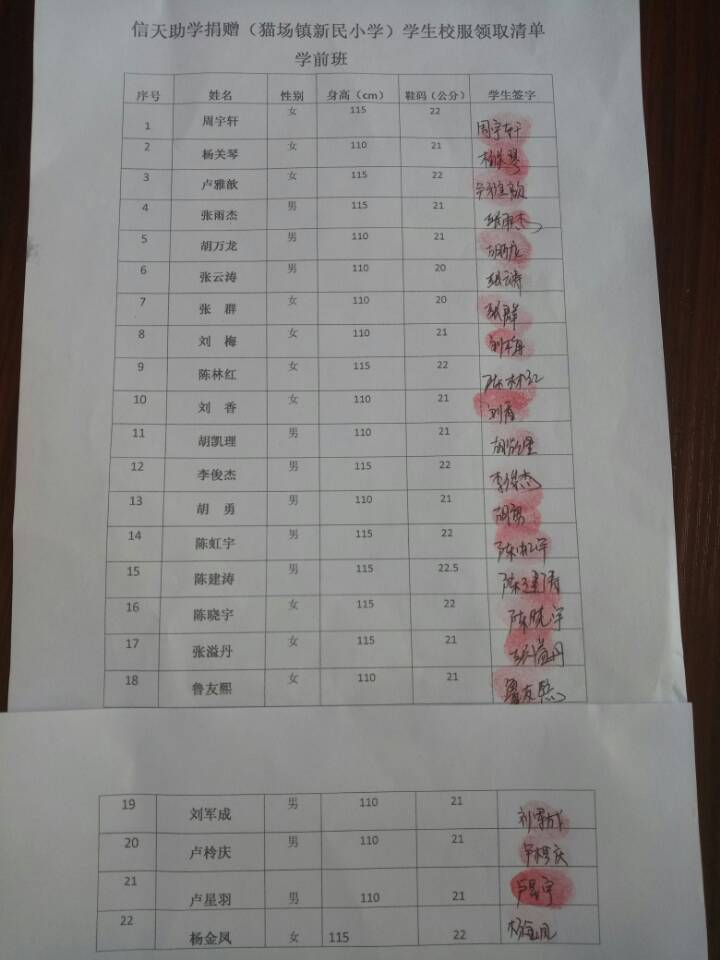 信天助学捐赠（猫场镇新民小学）学生校服领取清单
学前班
序号 姓名 性别 身高（cm） 鞋码（公分） 学生签字
1 周宇轩 女 115 22 周宇轩
2 杨关琴 女 110 21 杨关琴
3 卢雅歆 女 115 22 卢雅歆
4 张雨杰 男 115 21 张雨杰
5 胡万龙 男 110 21 胡万龙
6 张云涛 男 110 20 张云涛
7 张 群 女 110 20 张群
8 刘 梅 女 110 21 刘梅
9 陈林红 女 115 22 陈林红
10 刘 香 女 110 21 刘香
11 胡凯理 男 110 21
12 李俊杰 男 115 22 李俊杰
13 胡 勇 男 110 21 胡勇
14 陈虹宇 男 115 22 陈虹宇
15 陈建涛 男 115 22.5 陈建涛
16 陈晓宇 女 115 22 陈晓宇
17 张溢丹 女 115 21 张溢丹
18 鲁友熙 女 110 21 鲁友熙
19 刘军成 男 110 21 刘军成
20 卢柃庆 男 110 21
21 卢星羽 男 110 21
22 杨金凤 女 115 22 杨金凤